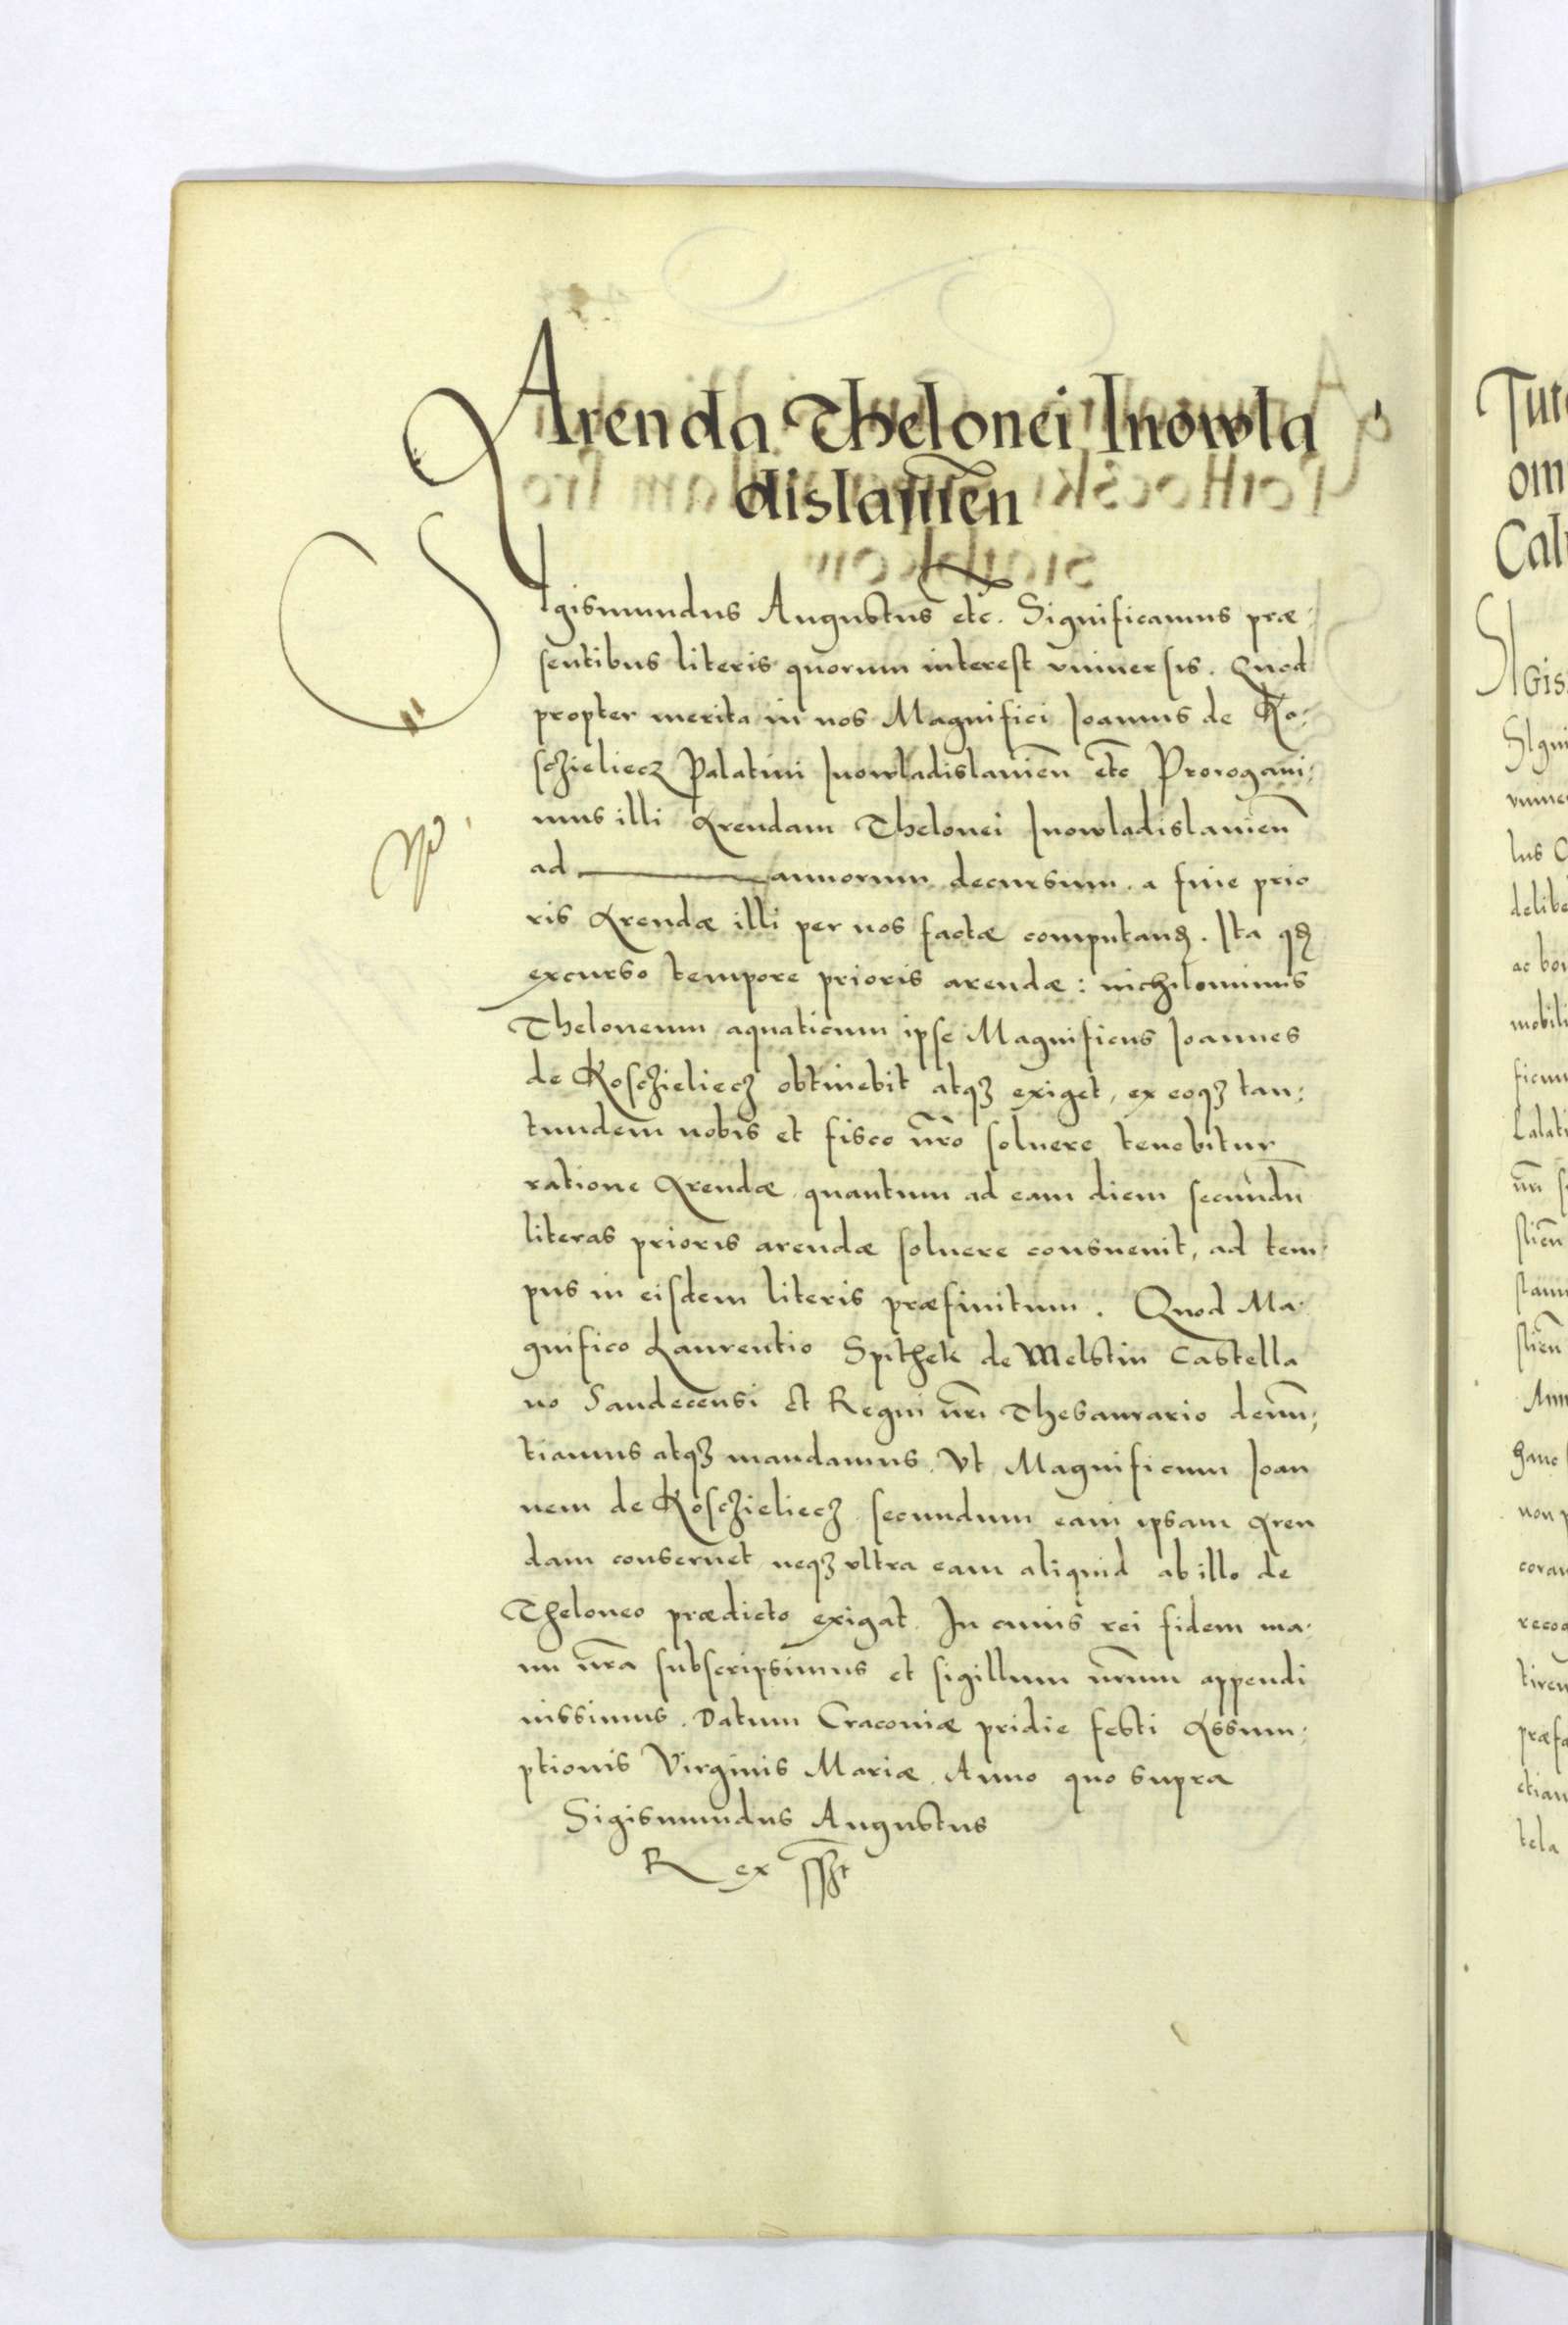 Arenda Thelonei Inowla
dislauien̄
SIgismundus Augustus etc. Significamus præ:
sentibus literis quorum interest vniuersis. Quod
propter merita in nos Magnifici Joannis de Ko:
sczieliecz Palatini Inowladislauien̄ etc̄ Prorogaui:
mus illi Arendam Thelonei Inowladislauien̄
ad annorum decursum a fine prio
ris Arendæ illi per nos factæ computand. Ita qd
excurso tempore prioris arendæ: nichilominus
Theloneum aquaticum ipse Magnificus Joannes
de Kosczieliecz obtinebit atqȝ exiget, ex eoqȝ tan:
tundem nobis et fisco nr̄o soluere tenebitur
ratione Arendæ quantum ad eam diem secundū
literas prioris arendæ soluere consueuit, ad tem:
pus in eisdem literis præfinitum. Quod Ma:
gnifico Laurentio Spithek de Melstin Castella
no Sandecensi et Regni nr̄i Thesaurario denun:
tiamus atqȝ mandamus. Vt Magnificum Joan
nem de Kosczieliecz secundum eam ipsam Aren
dam conseruet neqȝ vltra eam aliquid ab illo de
Theloneo prædicto exigat. In cuius rei fidem ma:
nu nr̄a subscripsimus et sigillum nr̄um appendi
iussimus. Datum Cracouiæ pridie festi Assum:
ptionis Virginis Mariæ. Anno quo supra
Sigismundus Augustus
Rex sst
Tut
om
Cal
SIGis